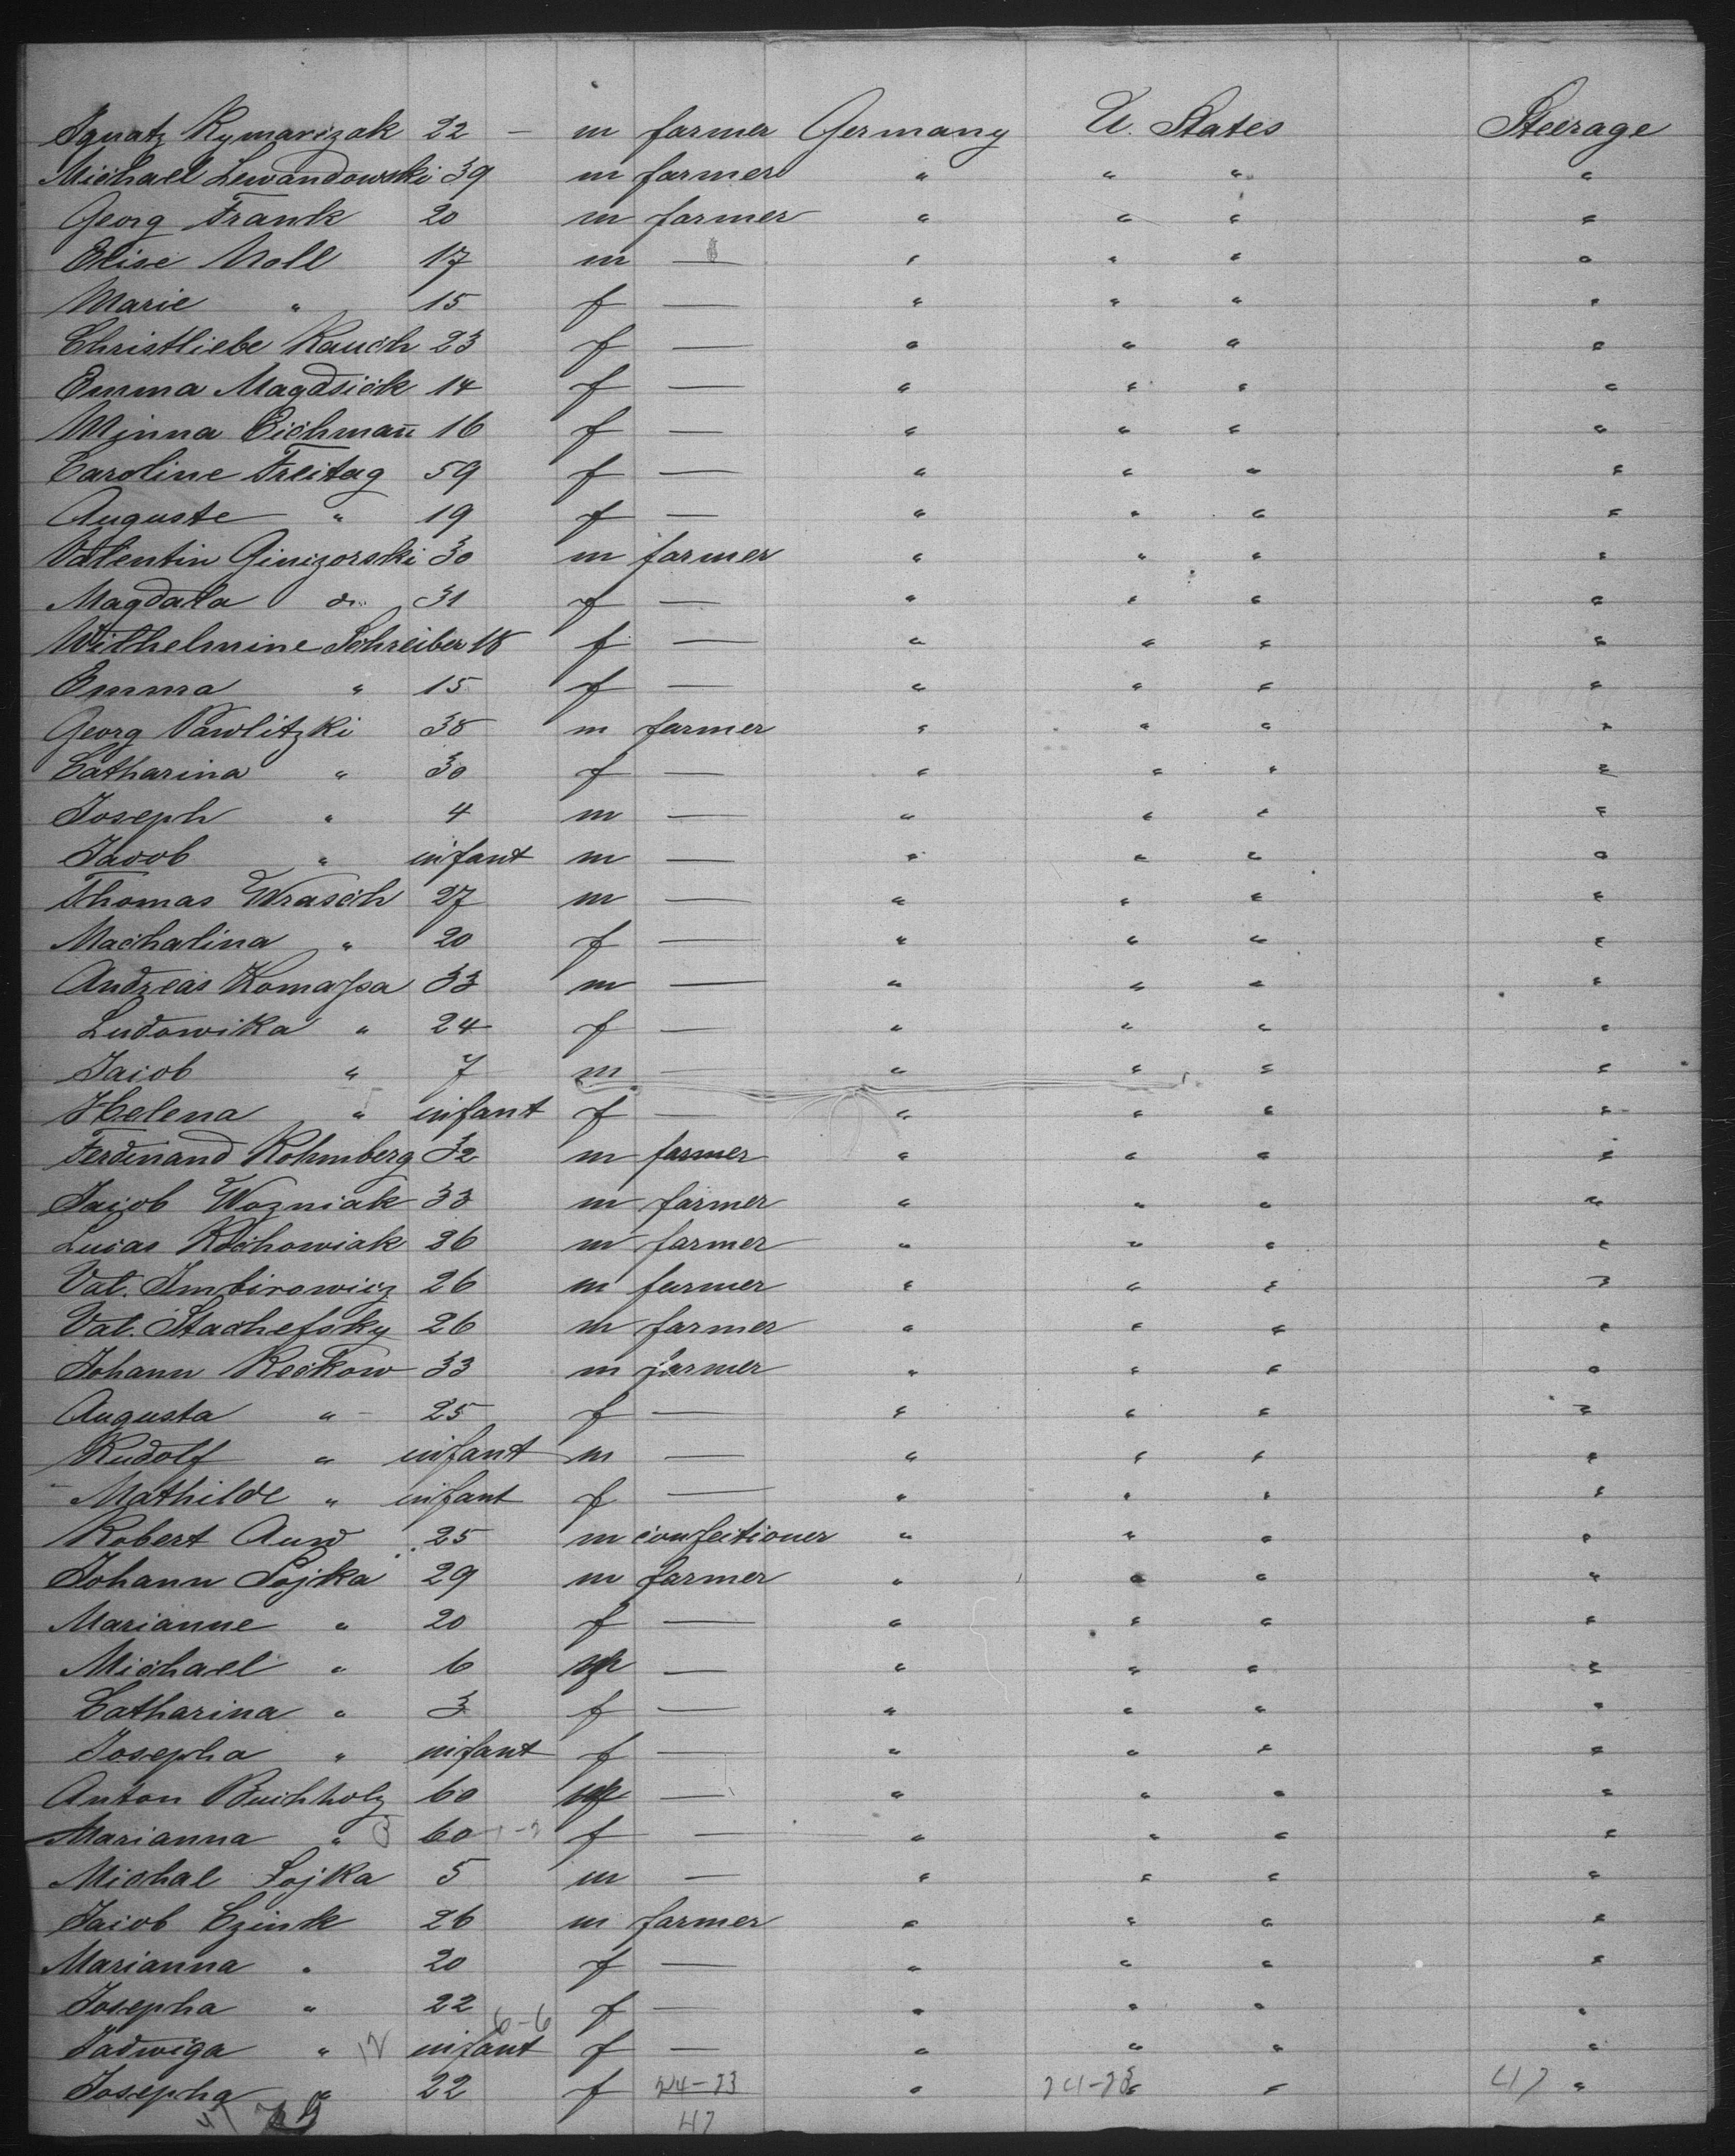 Ignatz Rymarizak 22 – m farmer Germany U. States Steerage
Michael Lewandowski 39 m farmer " " " "
Georg Frank 20 m farmer " " " "
Elise Noll 17 m — " " " "
Marie " 15 f — " " " "
Christliebe Rauch 23 f — " " " "
Emma Magdsick 14 f — " " " "
Minna Eichmañ 16 f — " " " "
Caroline Freitag 59 f — " " " "
Auguste " 19 f — " " " "
Valentin Ginizorski 30 m farmer " " " "
Magdala do 31 f — " " " "
Wilhelmine Schreiber 18 f — " " " "
Emma " 15 f — " " " "
Georg Pawlitzki 38 m farmer " " " "
Catharina " 30 f — " " " "
Joseph " 4 m — " " " "
Jacob " infant m — " " " "
Thomas Wrasch 27 m — " " " "
Machalina " 20 f — " " " "
Andreas Komassa 33 m — " " " "
Ludowika " 24 f — " " " "
Jacob " 7 m — " " " "
Helena " infant f — " " " "
Ferdinand Rohmberg 32 m farmer " " " "
Jacob Wozniak 33 m farmer " " " "
Lucas 26 m farmer " " " "
Val. Imbirowicz 26 m farmer " " " "
Val. Stachefsky 26 m farmer " " " "
Johann Reckow 33 m farmer " " " "
Augusta " 25 f — " " " "
Rudolf " infant m — " " " "
Mathilde " infant f — " " " "
Robert Auw 25 m confectioner " " " "
Johann Sojka 29 m farmer " " " "
Marianne " 20 f — " " " "
Michael " 6 m — " " " "
Catharina " 3 f — " " " "
Josepha " infant f — " " " "
Anton Buchholz 60 m — " " " "
Marianna " 60 f — " " " "
Michal Sojka 5 m — " " " "
Jacob Czink 26 m farmer " " " "
Marianna " 20 f — " " " "
Josepha " 22 f — " " " "
6-6
Jadwiga " 12 infant f — " " " "
Josepha " 22 f 24-23 " 24-23 " " 47 "
47 47